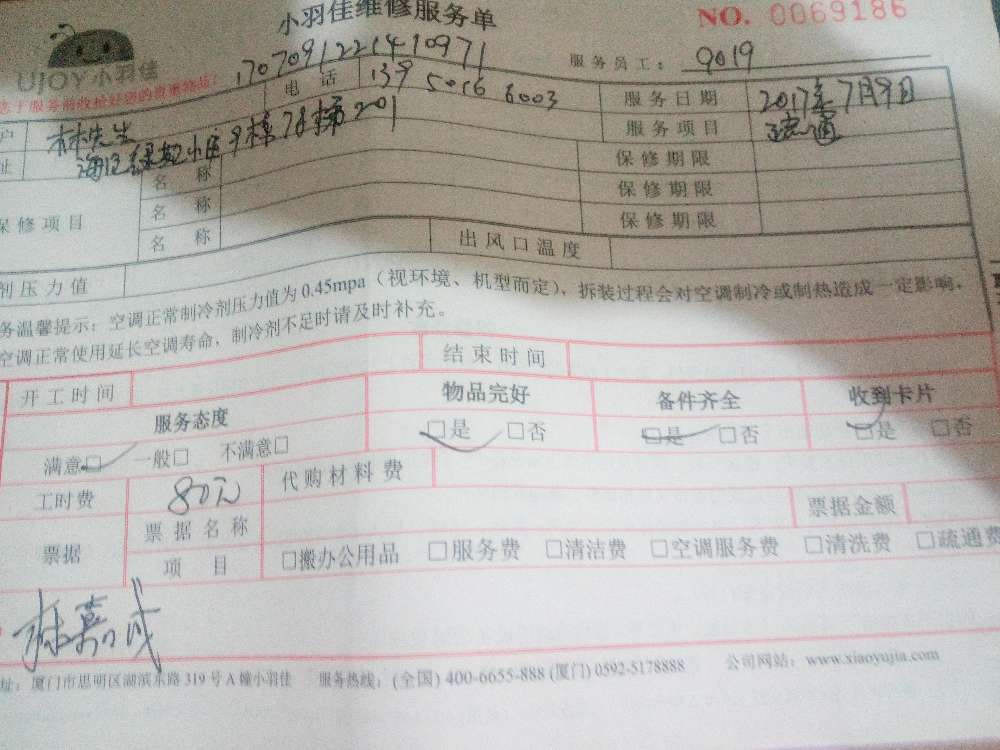 小羽佳维修服务单
NO. 0069186
UJOY小羽佳
1707091221410971
服务员工: 9019
户 林先生 电话 139 5016 6003 服务日期 2017年7月9日
址 服务项目 疏通
保修项目 名称 保修期限
名称 保修期限
名称 保修期限
剂压力值 出风口温度
务温馨提示: 空调正常制冷剂压力值为 0.45mpa (视环境、机型而定), 拆装过程会对空调制冷或制热造成一定影响,
空调正常使用延长空调寿命, 制冷剂不足时请及时补充。
开工时间 结束时间
服务态度 物品完好 备件齐全 收到卡片
满意□ 一般□ 不满意□ □是 □否 □是 □否 □是 □否
工时费 80元 代购材料费
票据 票据名称 票据金额
项目 □搬办公用品 □服务费 □清洁费 □空调服务费 □清洗费 □疏通费
址: 厦门市思明区湖滨东路 319 号 A 幢小羽佳 服务热线: (全国) 400-6655-888 (厦门) 0592-5178888 公司网站: www.xiaoyujia.com